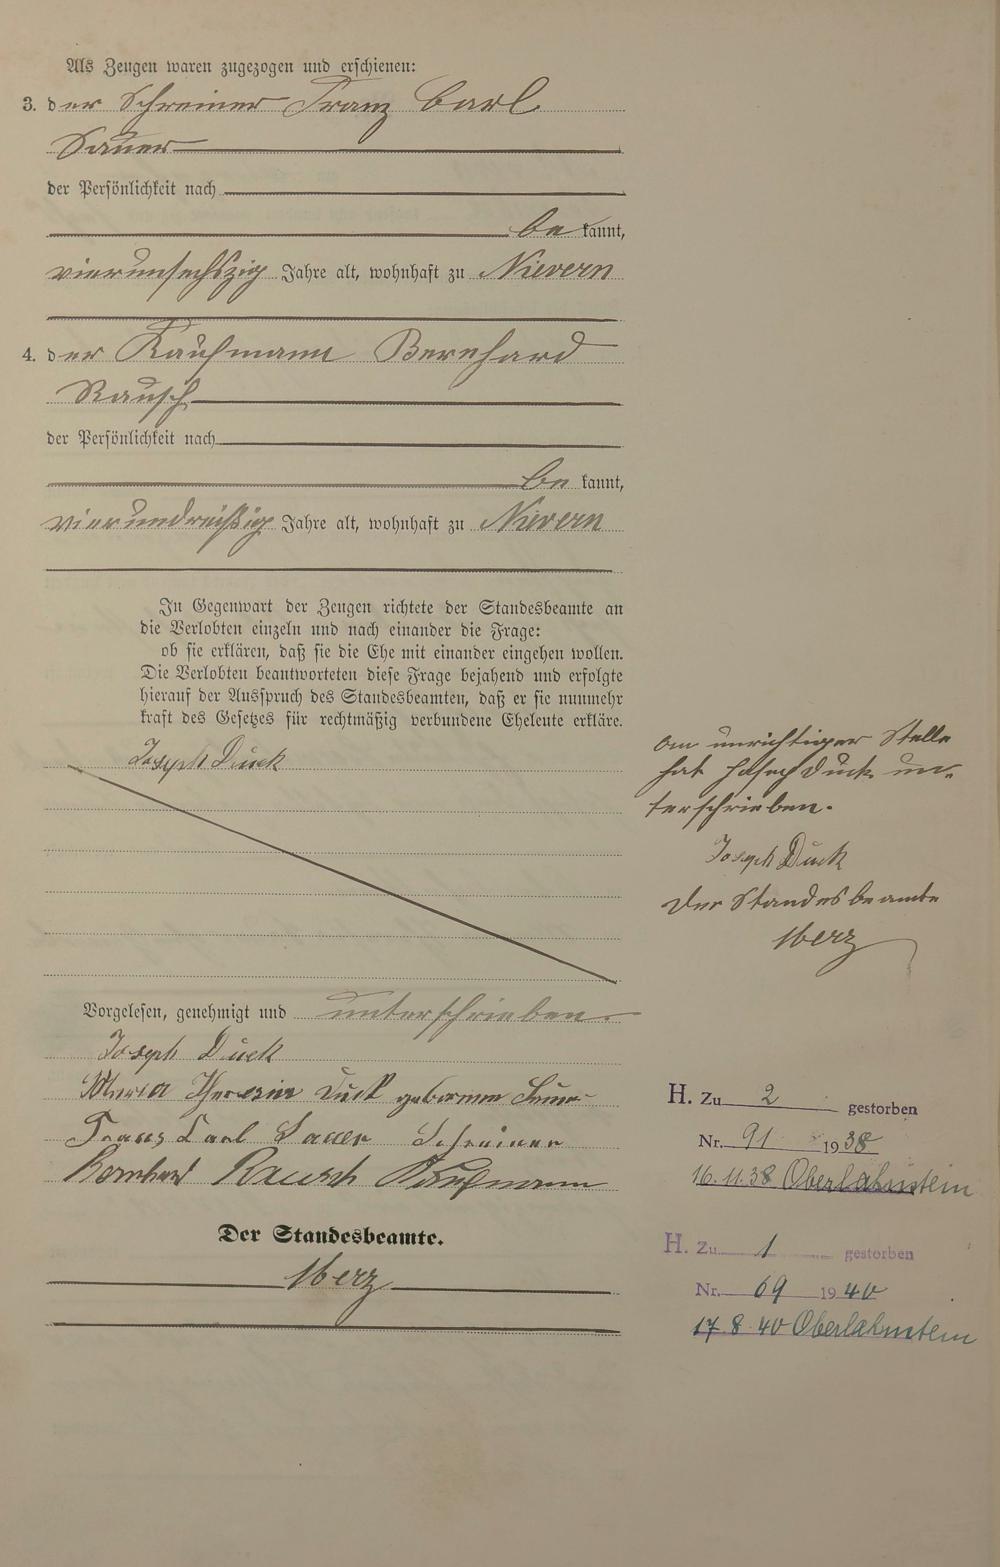 Als Zeugen waren zugezogen und erschienen:
3. der Schreiner Franz Carl
Sauer
der Persönlichkeit nach
be kannt,
vierunsechszig Jahre alt, wohnhaft zu Nievern
4. der Kaufmann Bernhard
Rausch
der Persönlichkeit nach
be kannt,
vierunddreißig Jahre alt, wohnhaft zu Nievern
In Gegenwart der Zeugen richtete der Standesbeamte an
die Verlobten einzeln und nach einander die Frage:
ob sie erklären, daß sie die Ehe mit einander eingehen wollen.
Die Verlobten beantworteten diese Frage bejahend und erfolgte
hierauf der Ausspruch des Standesbeamten, daß er sie nunmehr
kraft des Gesetzes für rechtmäßig verbundene Eheleute erkläre.
Joseph Duck
Vorgelesen, genehmigt und unterschrieben.
Joseph Duck
Maria Theresia Duck geborenen Sauer
Franz Carl Sauer Schreiner
Bernhard Rausch Kaufmann
Der Standesbeamte.
Merz
Am unrichtiger Stelle
hat Joseph Duck un-
terschrieben.
Joseph Duck
Der Standesbeamte
Merz
H. Zu 2 gestorben
Nr. 91 1938
16.11.38 Oberlahnstein
H. Zu 1 gestorben
Nr. 69 1940
17.8.40 Oberlahnstein